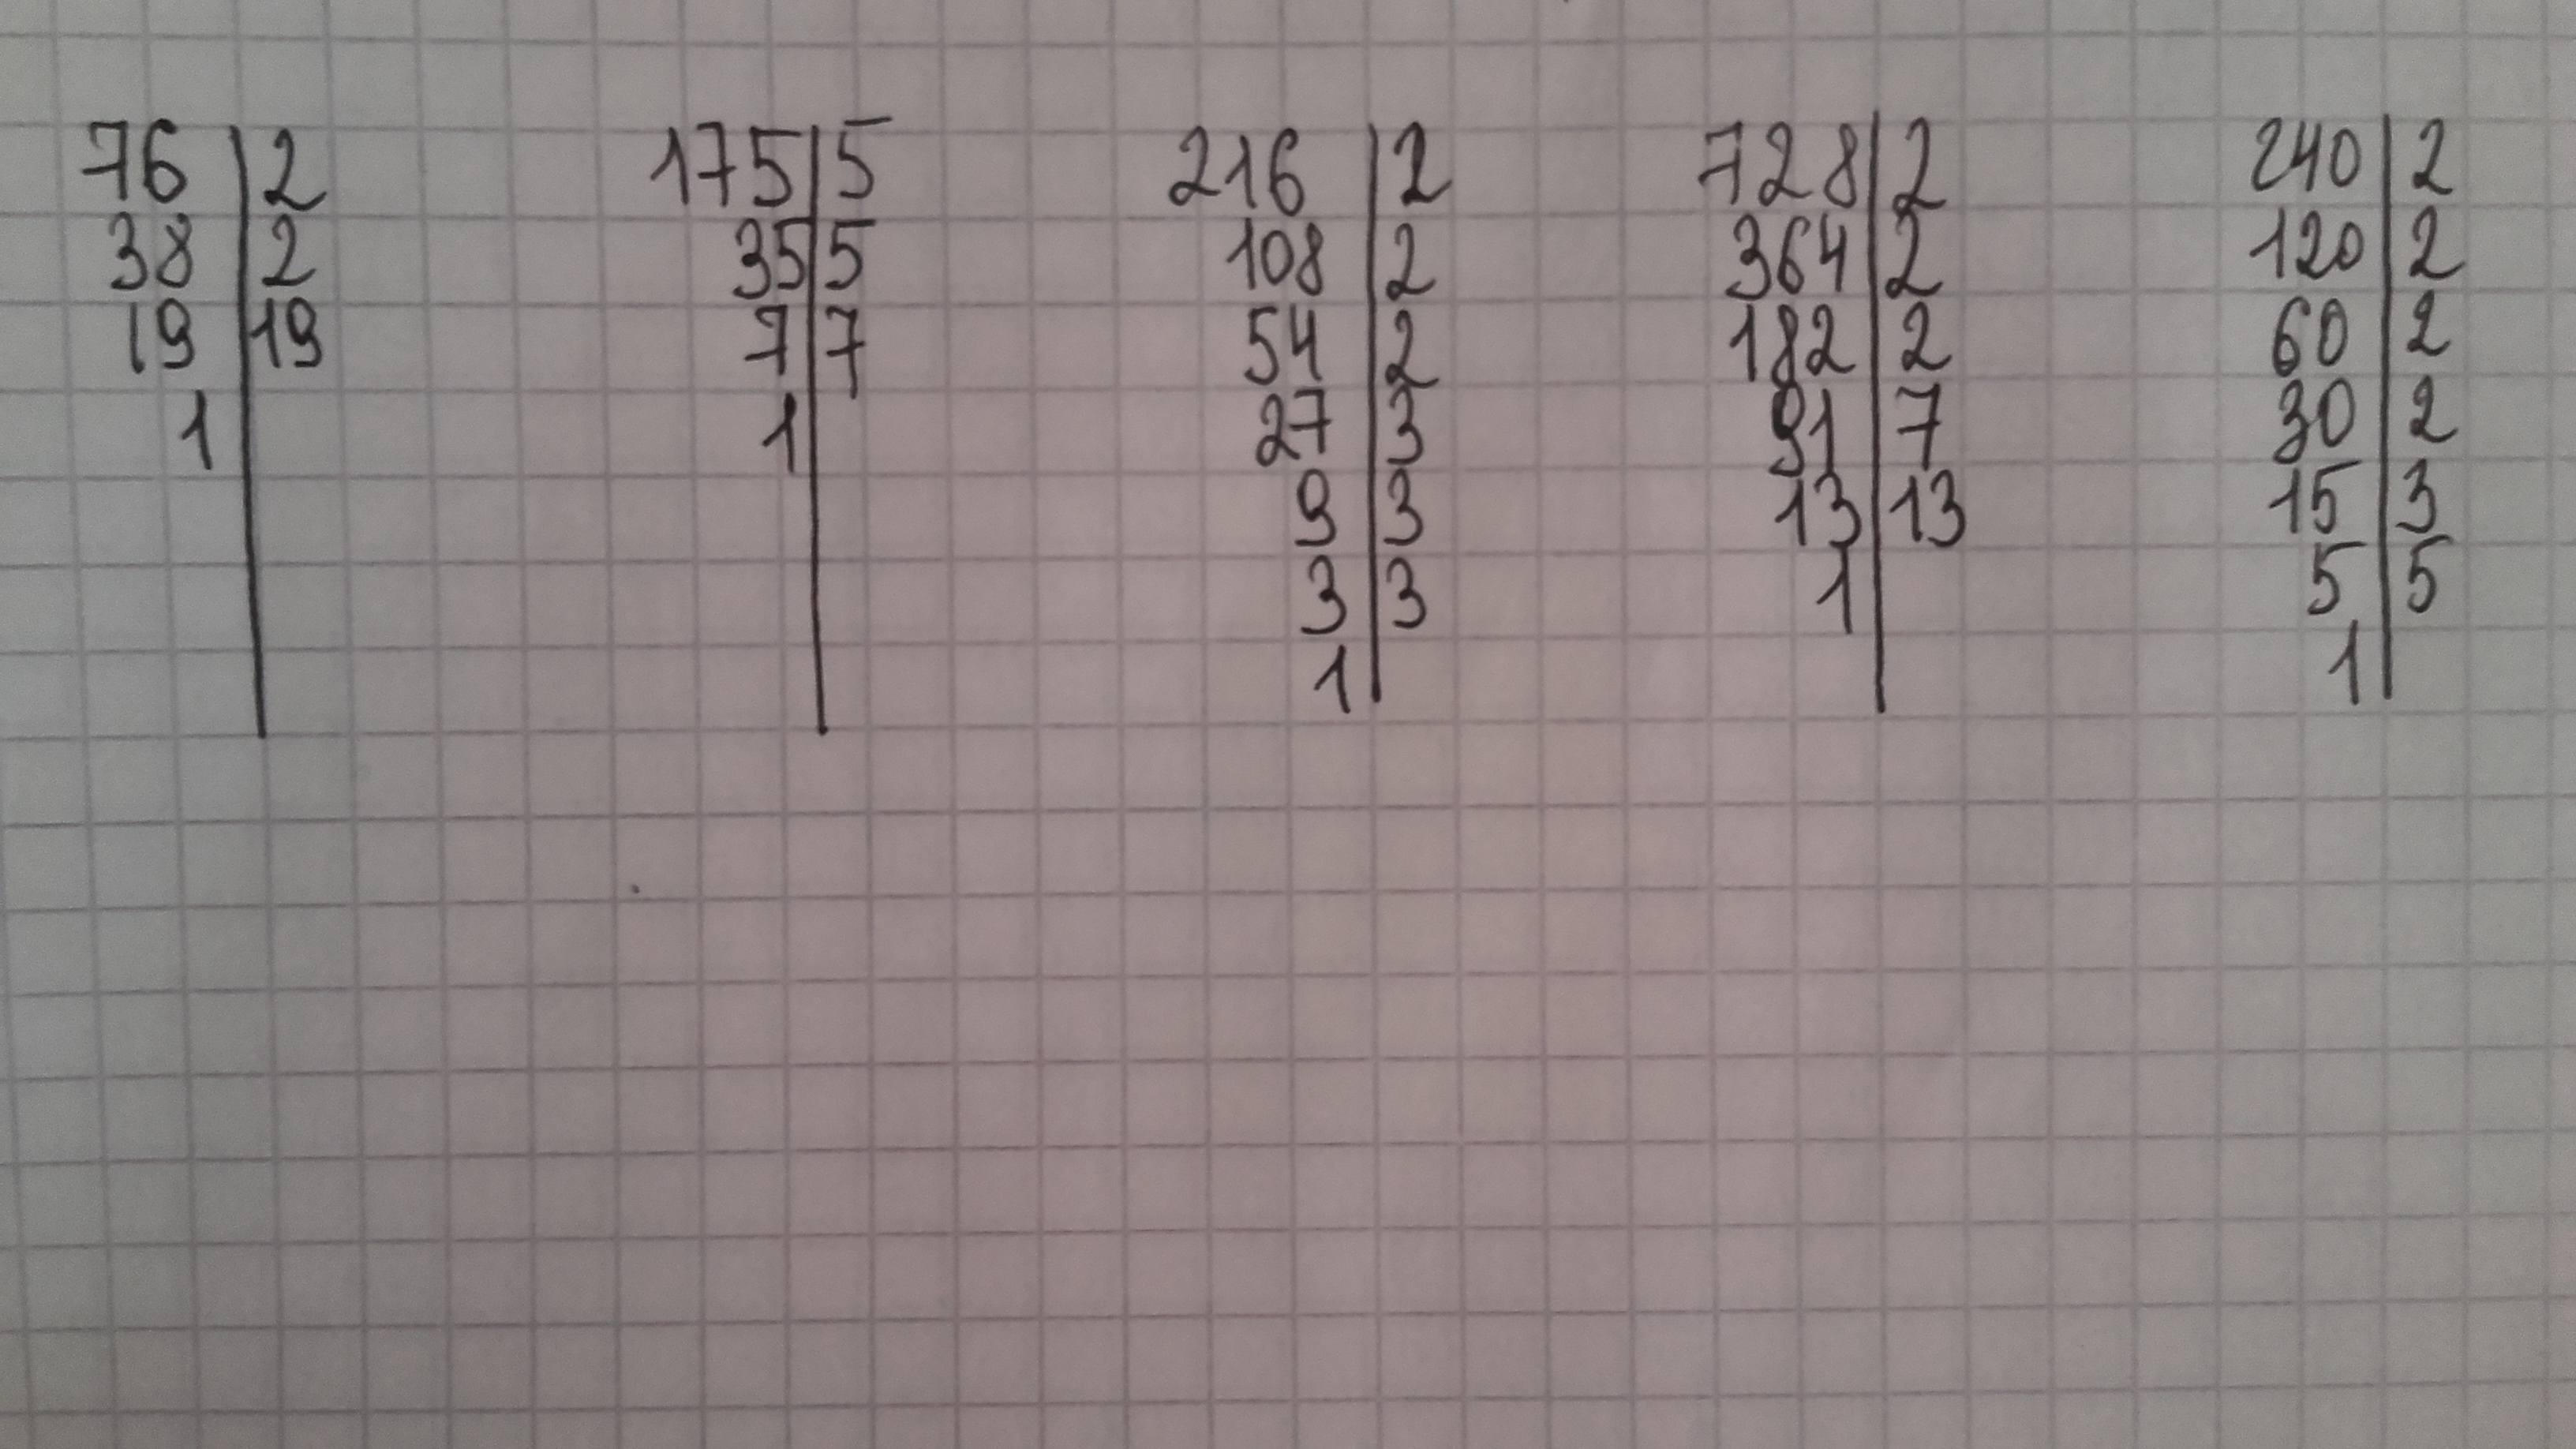 76 | 2
38 | 2
19 | 19
1 |
175 | 5
35 | 5
7 | 7
1 |
216 | 2
108 | 2
54 | 2
27 | 3
9 | 3
3 | 3
1 |
728 | 2
364 | 2
182 | 2
91 | 7
13 | 13
1 |
240 | 2
120 | 2
60 | 2
30 | 2
15 | 3
5 | 5
1 |